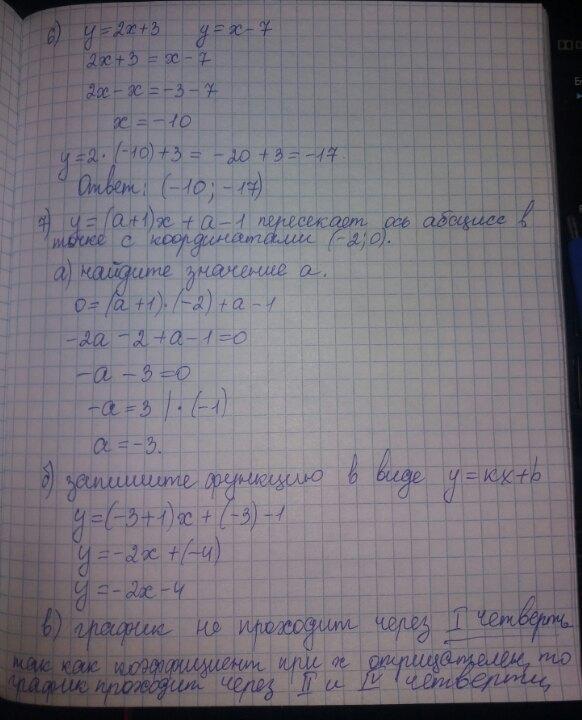 6) y=2x+3 y=x-7
2x+3=x-7
2x-x=-3-7
x=-10
y=2·(-10)+3=-20+3=-17.
Ответ: (-10; -17)
7) y=(a+1)x+a-1 пересекает ось абсцисс в
точке с координатами (-2;0).
а) найдите значение а.
0=(a+1)·(-2)+a-1
-2a-2+a-1=0
-a-3=0
-a=3 |·(-1)
a=-3.
б) запишите функцию в виде y=кх+b
y=(-3+1)x+(-3)-1
y=-2x+(-4)
y=-2x-4
в) график не проходит через I четверть
так как коэффициент при х отрицателен, то
график проходит через II и IV четверти